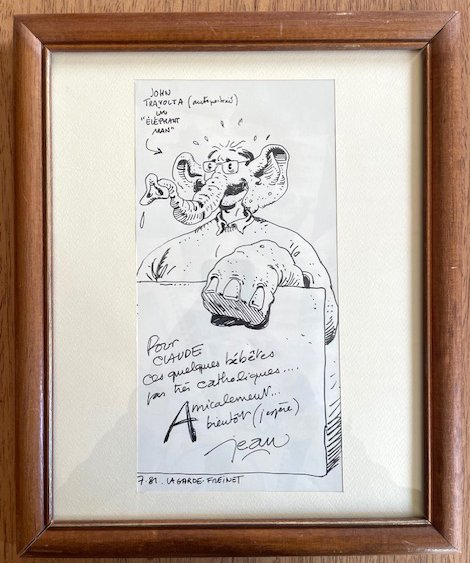 JOHN
TRAVOLTA (autoportrait)
IN
"ÉLÉPHANT
MAN"
Pour
CLAUDE
Ces quelques bébêtes
pas très catholiques....
Amicalement...
bientôt (j'espère)
Jean
7.81. LA GARDE-FREINET